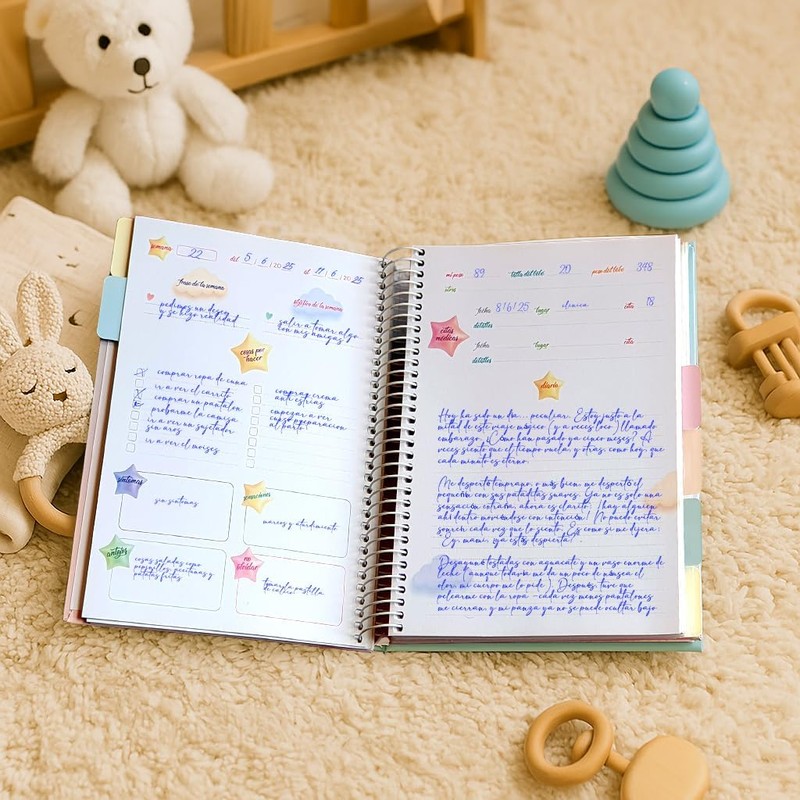 semana 22 del 5 / 6 / 2025 al 11 / 6 / 2025
frase de la semana
pedimos un deseo
y se hizo realidad
objetivo de la semana
salir a tomar algo
con mis amigas
cosas por
hacer
comprar ropa de cuna
ir a ver el carrito
comprar un pantalon
probarme la camisa
ir a ver un sujetador
sin aros
ir a ver el moises
comprar crema
anti estrias
empezar a ver
curso preparacion
al parto
síntomas
sin sintomas
emociones
mareos y aturdimiento
antojos
cosas saladas como
pepinillos, aceitunas y
patatas fritas
no
olvidar
tomar la pastilla
de calcio
mi peso 89 talla del bebe 20 peso del bebe 348
otros
citas
médicas
fecha 8/6/25 lugar clinica cita 18
detalles
fecha lugar cita
detalles
diario
Hoy ha sido un día... peculiar. Estoy justo a la
mitad de este viaje mágico (y a veces loco) llamado
embarazo. ¿Cómo han pasado ya cinco meses? A
veces siento que el tiempo vuela, y otras, como hoy, que
cada minuto es eterno.
Me desperté temprano, o más bien, me despertó el
pequeñín con sus pataditas suaves. Ya no es solo una
sensación extraña, ahora es clarito: ¡hay alguien
ahí dentro moviéndose con intención! No puedo evitar
sonreír cada vez que lo siento. Es como si me dijera:
"Ey, mami, ¿ya estás despierta?"
Desayuné tostadas con aguacate y un vaso enorme de
leche (aunque todavía me da un poco de náusea el
olor, mi cuerpo me lo pide). Después, tuve que
pelearme con la ropa —cada vez menos pantalones
me cierran, y mi panza ya no se puede ocultar bajo